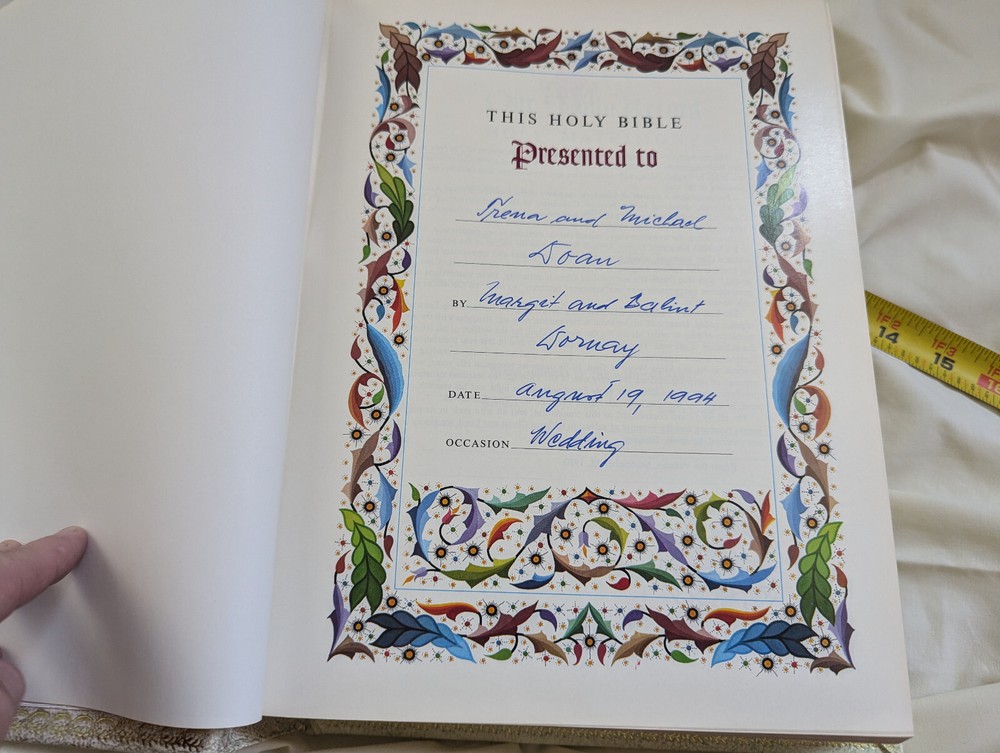 THIS HOLY BIBLE
Presented to
Trena and Michael
Doan
BY Margit and Balint
Dornay
DATE August 19, 1994
OCCASION Wedding
1F2
14
1F3
15